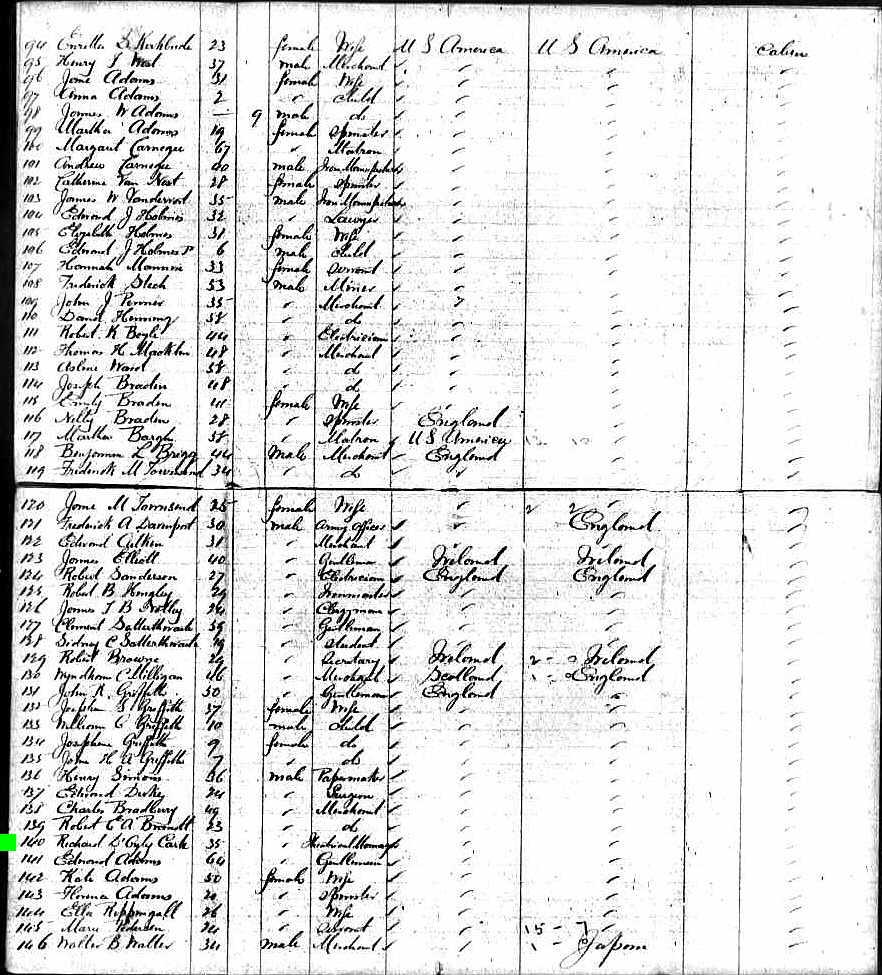 94 23 female Wife U S America U S America Cabin
95 Henry 37 male Merchant
96 Jane Adams 31 female Wife
97 Anna Adams 2 " Child
98 James W Adams — 9 male do
99 Martha Adams 19 female Spinster
100 Margaret Carnegie 67 " Matron
101 Andrew Carnegie 40 male
102 Catherine Van Nost 28 female Spinster
103 James W Vandervort 35 male
104 Edmond J Holmes 32 " Lawyer
105 Elizabeth Holmes 31 female Wife
106 Edmond J Holmes 6 male Child
107 Hannah 33 female Servant
108 Frederick 53 male Miner
109 John J 35 " Merchant
110 David Henning 58 " do
111 Robert K Boyle 44 " Electrician
112 Thomas H 48 " Merchant
113 Ward 58 " do
114 Joseph Braden 48 " do
115 Emily Braden 41 female Wife
116 Nelly Braden 28 " Spinster England
117 Martha 58 " Matron U S America
118 Benjamin L 44 Male Merchant England
119 Frederick M Townsend 34 " do "
120 Jane M Townsend 25 female Wife "
121 Frederick A Davenport 30 male Army Officer " England
122 Edward Aitken 31 " Merchant "
123 James Elliott 40 " Gentleman Ireland Ireland
124 Robert Sanderson 27 " Electrician England England
125 Robert B Hingley 29 " Ironmaster
126 James T B 24 " Clergyman
127 Clement Satterthwaite 39 " Gentleman
128 Sidney C Satterthwaite 19 " Student
129 Robert Browne 29 " Secretary Ireland 2 Ireland
130 Wyndham C Milligan 46 " Merchant Scotland England
131 John R. Griffith 50 " Gentleman England
132 S Griffith 37 female Wife
133 William C Griffith 10 male Child
134 Josephine Griffith 9 female do
135 Jane H A Griffith 7 " do
136 Henry Simons 36 male Papermaker
137 Edward 24 " Surgeon
138 Charles Bradbury 49 " Merchant
139 Robert E A 23 " do
140 Richard D'Oyly Carte 35 " Theatrical Manager
141 Edmond Adams 64 " Gentleman
142 Kate Adams 50 female Wife
143 Adams 20 " Spinster
144 Ella 26 " Wife
145 24 " Servant 15 - 7
146 Walter B Walter 34 male Merchant Japan